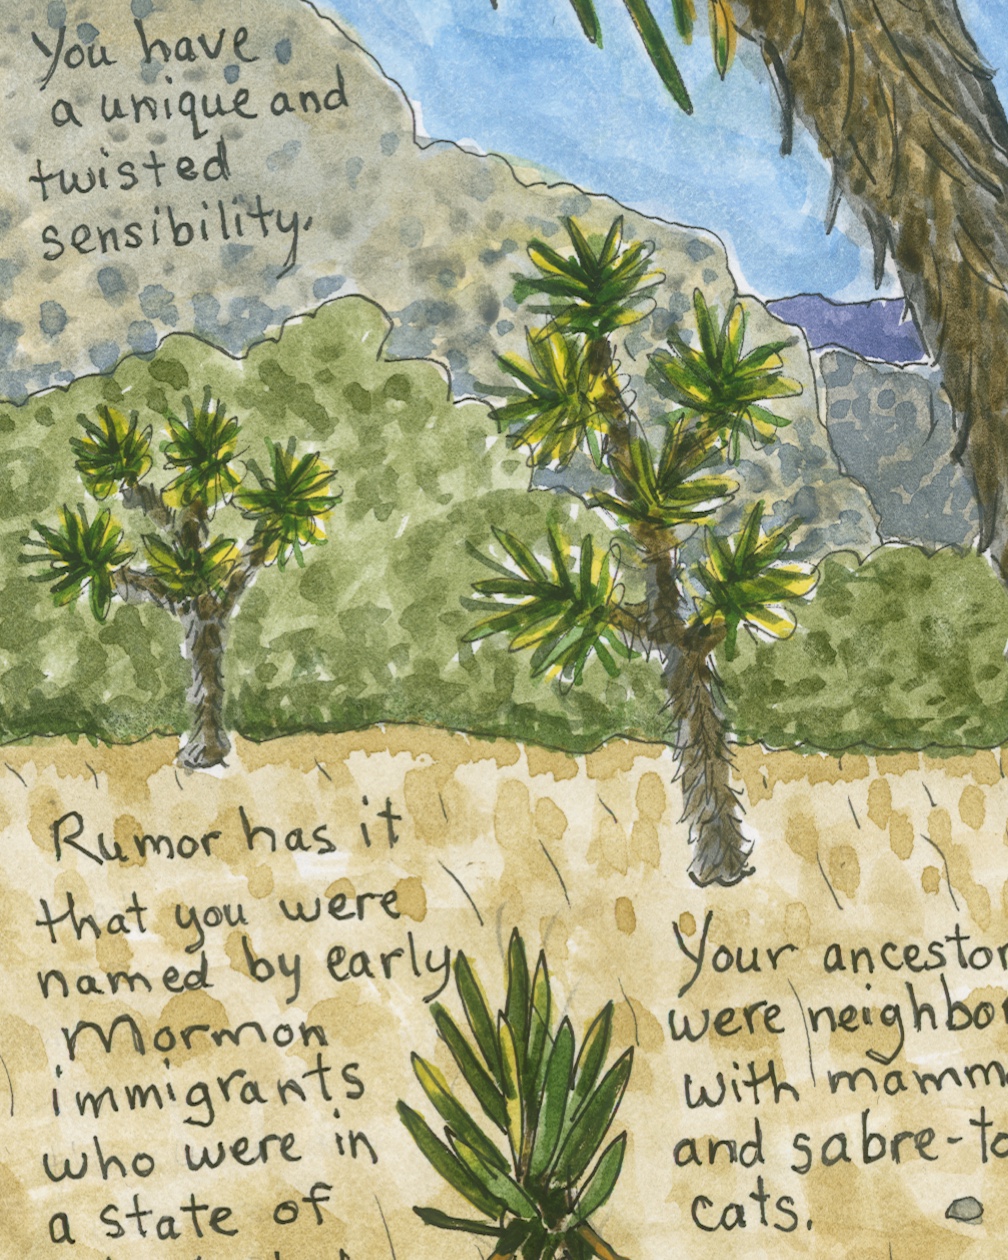 You have
a unique and
twisted
sensibility.
Rumor has it
that you were
named by early
Mormon
immigrants
who were in
a state of
Your
were
with
and
cats.